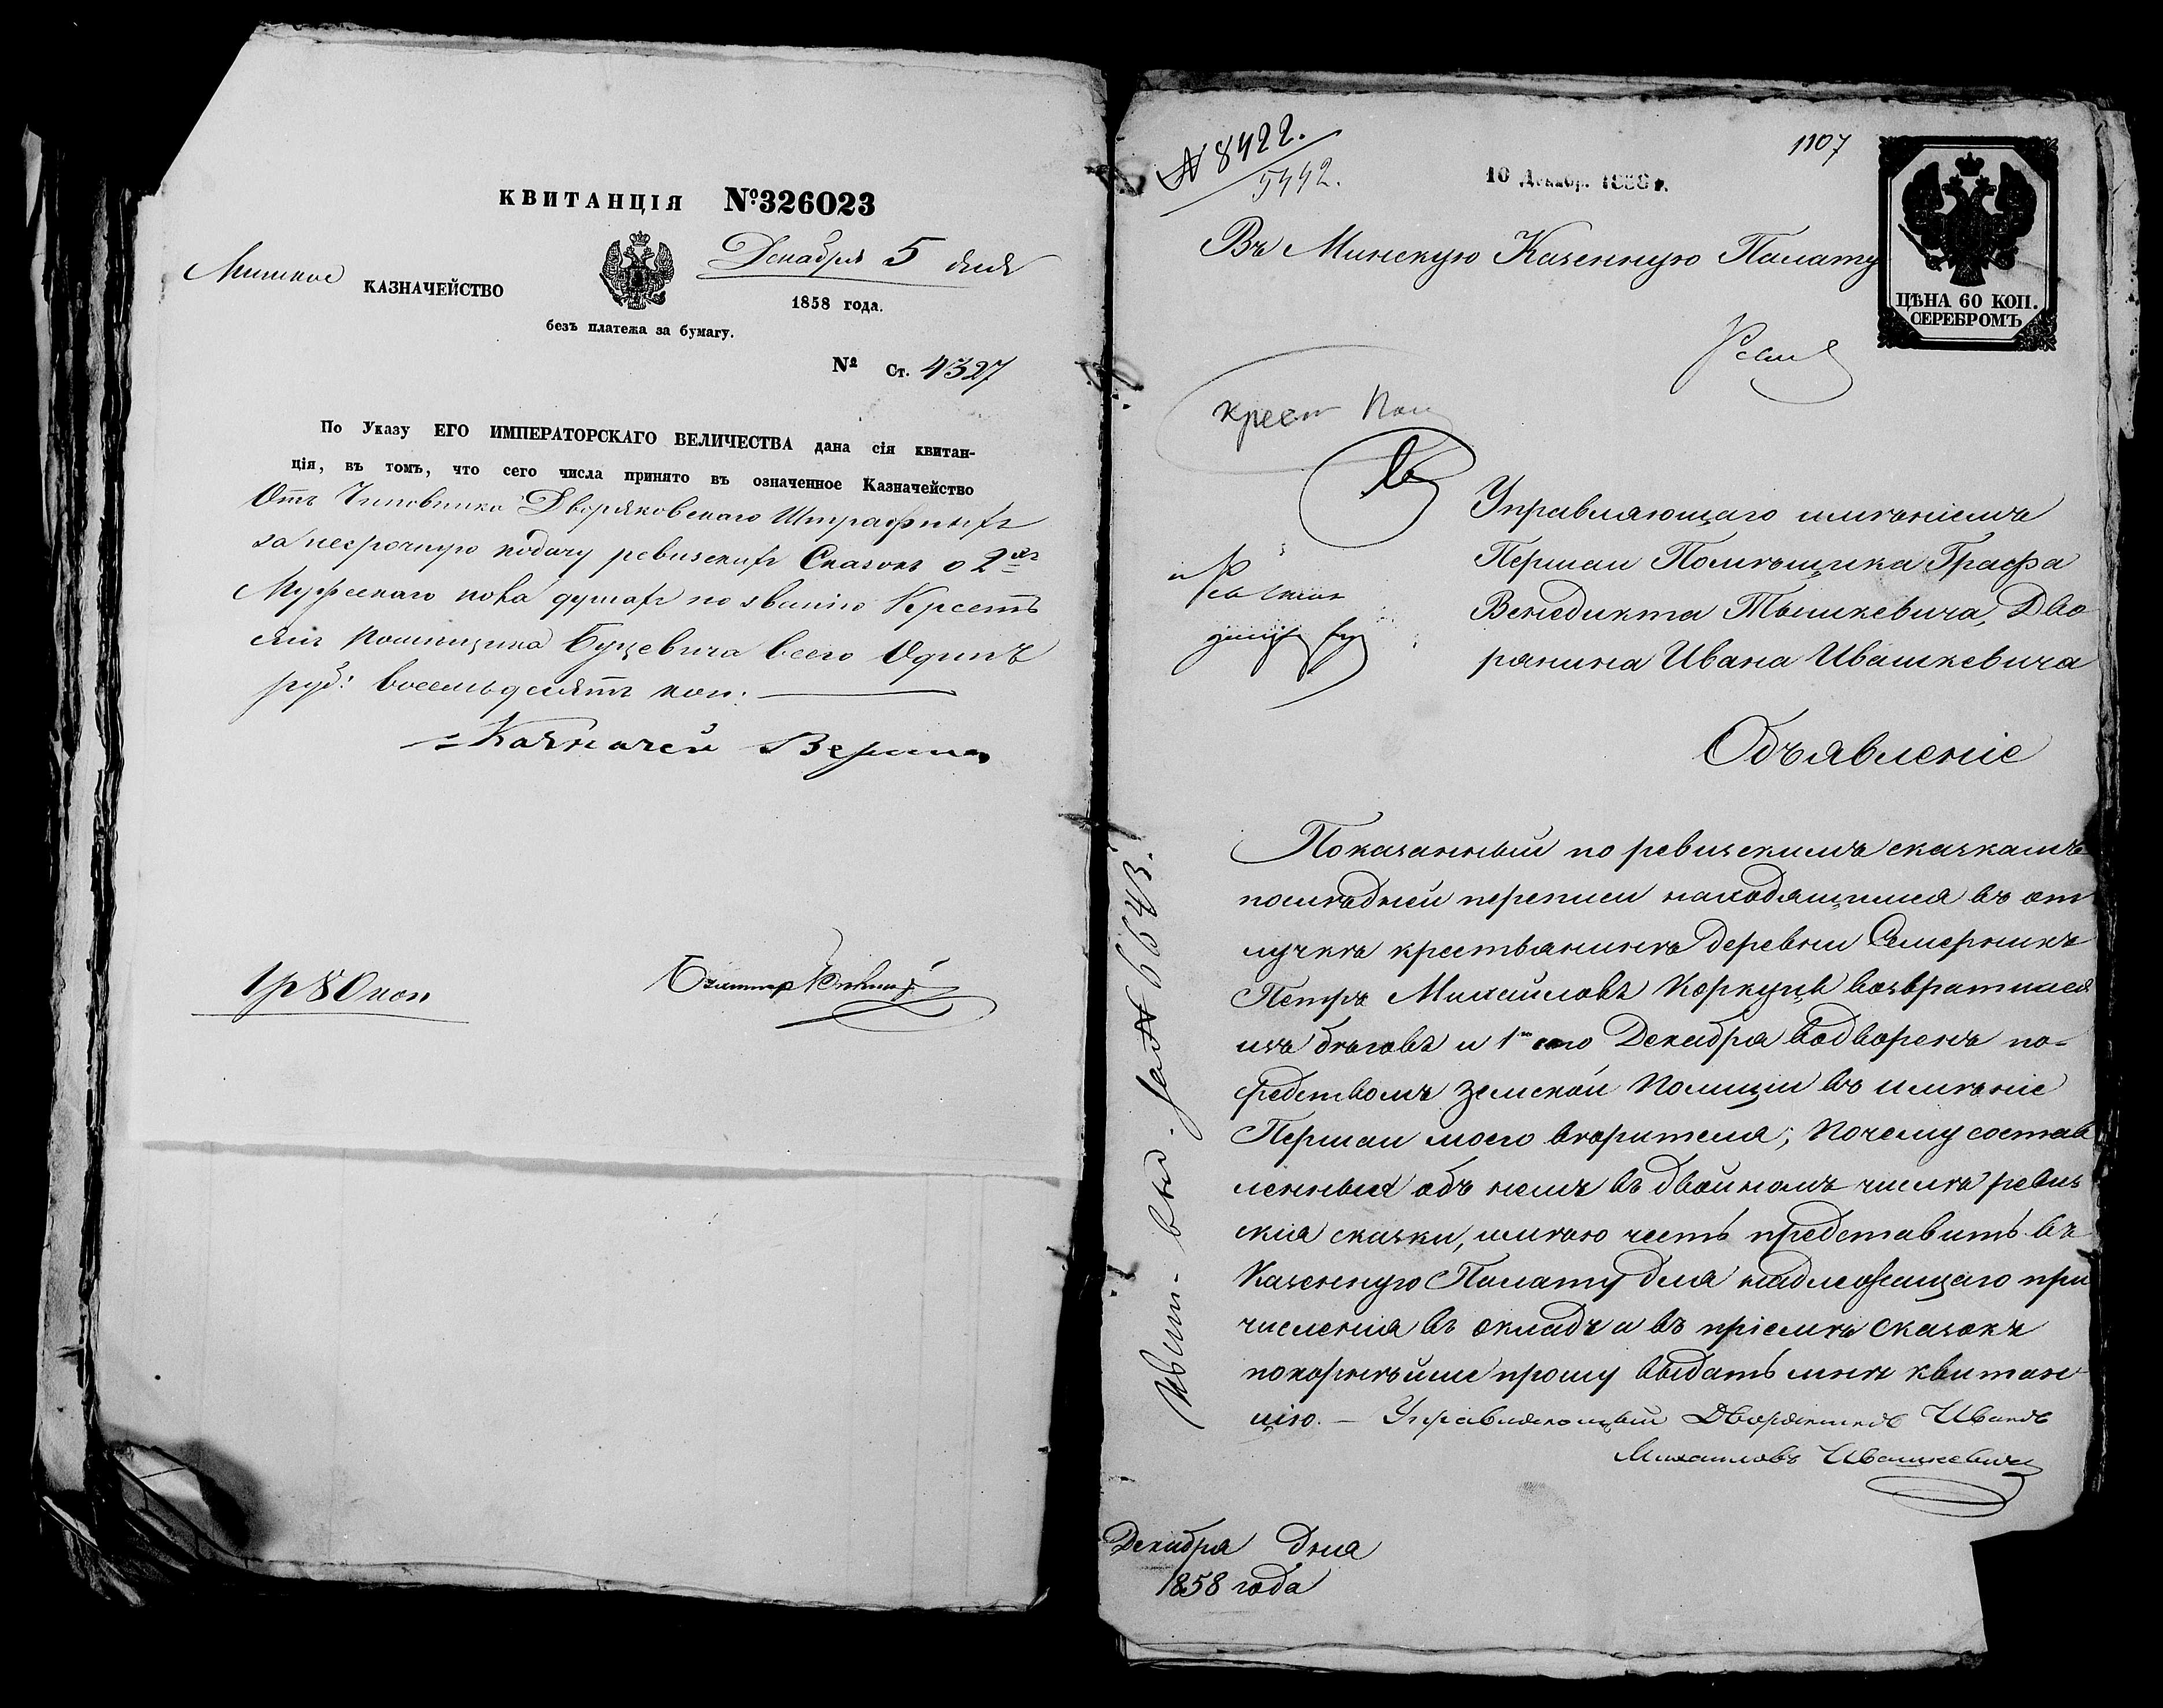 КВИТАНЦІЯ №326023
Минское КАЗНАЧЕЙСТВО
Декабря 5 дня
1858 года.
безъ платежа за бумагу.
№ Ст. 4327
По Указу ЕГО ИМПЕРАТОРСКАГО ВЕЛИЧЕСТВА дана сія квитан-
ція, въ томъ, что сего числа принято въ означенное Казначейство
Отъ Чиновника Дворяковскаго Штрафныхъ
за несрочную подачу ревизскихъ Сказокъ о 2хъ
Мужескаго пола душахъ по званію Крестъ
янъ помѣщика Буцевича всего Одинъ
руб: восемьдесятъ коп:
Казначей
1р 80 коп
№ 8422.
5442.
10 Декабр. 1858 г.
1107
Въ Минскую Казенную Палату
ЦѢНА 60 КОП.
СЕРЕБРОМЪ
крест
Управляющаго имѣніемъ
Першаи Помѣщика Графа
Бенедикта Тышкевича, Дво
рянина Ивана Ивашкевича
Объявленіе
Показанный по ревизскимъ сказкамъ
послѣдней переписи находящимся въ от
лучкѣ крестьянинъ деревни Семерникъ
Петръ Михайловъ Коркуць возвратился
изъ бѣговъ и 1го сего Декабря водворенъ по-
средствомъ Земской Полиціи въ имѣніе
Першаи моего вѣрителя; Почему состав
ленныя объ немъ въ двойномъ числѣ ревиз
скія сказки, имѣю честь представить въ
Казенную Палату для надлежащаго при
численія въ окладъ а въ пріемѣ сказокъ
покорнѣйше прошу выдать мнѣ квитан
цію. — Управляющый Дворянинъ Иванъ
Михайловъ Ивашкевичъ
Декабря дня
1858 года
Квит. выд. за № 6643.